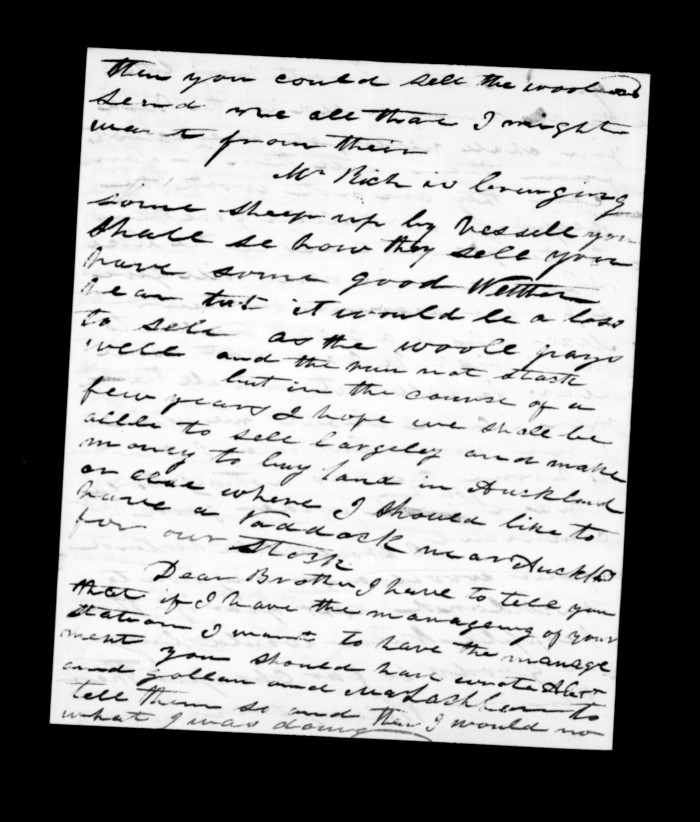 then you could sell the wool and
send me all that I might
want from their
Mr Rich is bringing
some sheep up by vessell you
shall se how they sell you
have some good Wethers
hear but it would be a loss
to sell as the woole pays
well and the run not stock
but in the course of a
few years I hope we shall be
able to sell largeley and make
money to buy land in Auckland
or else where I should like to
have a Paddock near Auckld
for our Stock
Dear Brother I have to tell you
that if I have the manageing of your
station I want to have the manage
ment you should have wrote Alexr
and gollan and to
tell them so and then I would no
what I was doing